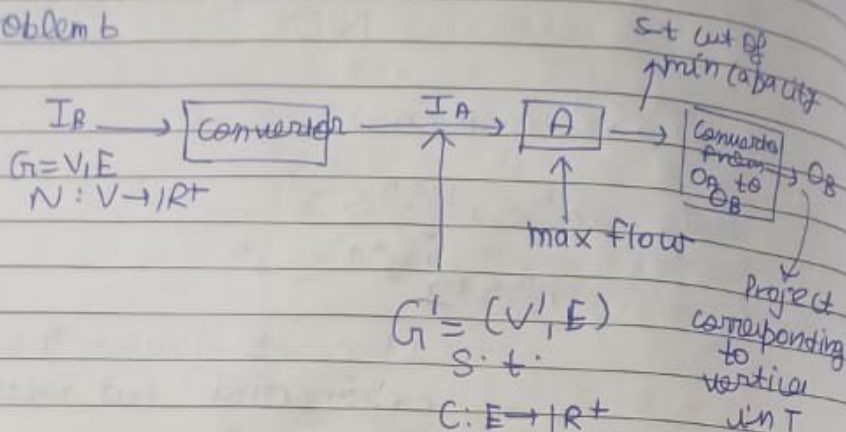 oblem b
s-t cut of
min capacity
I_B → Converter → I_A → A → Converter
from
O_A to
O_B
→ O_B
G = V, E
N : V → IR+
max flow
G' = (V', E)
s. t.
C : E → IR+
Project
corresponding
to
vertice
in T